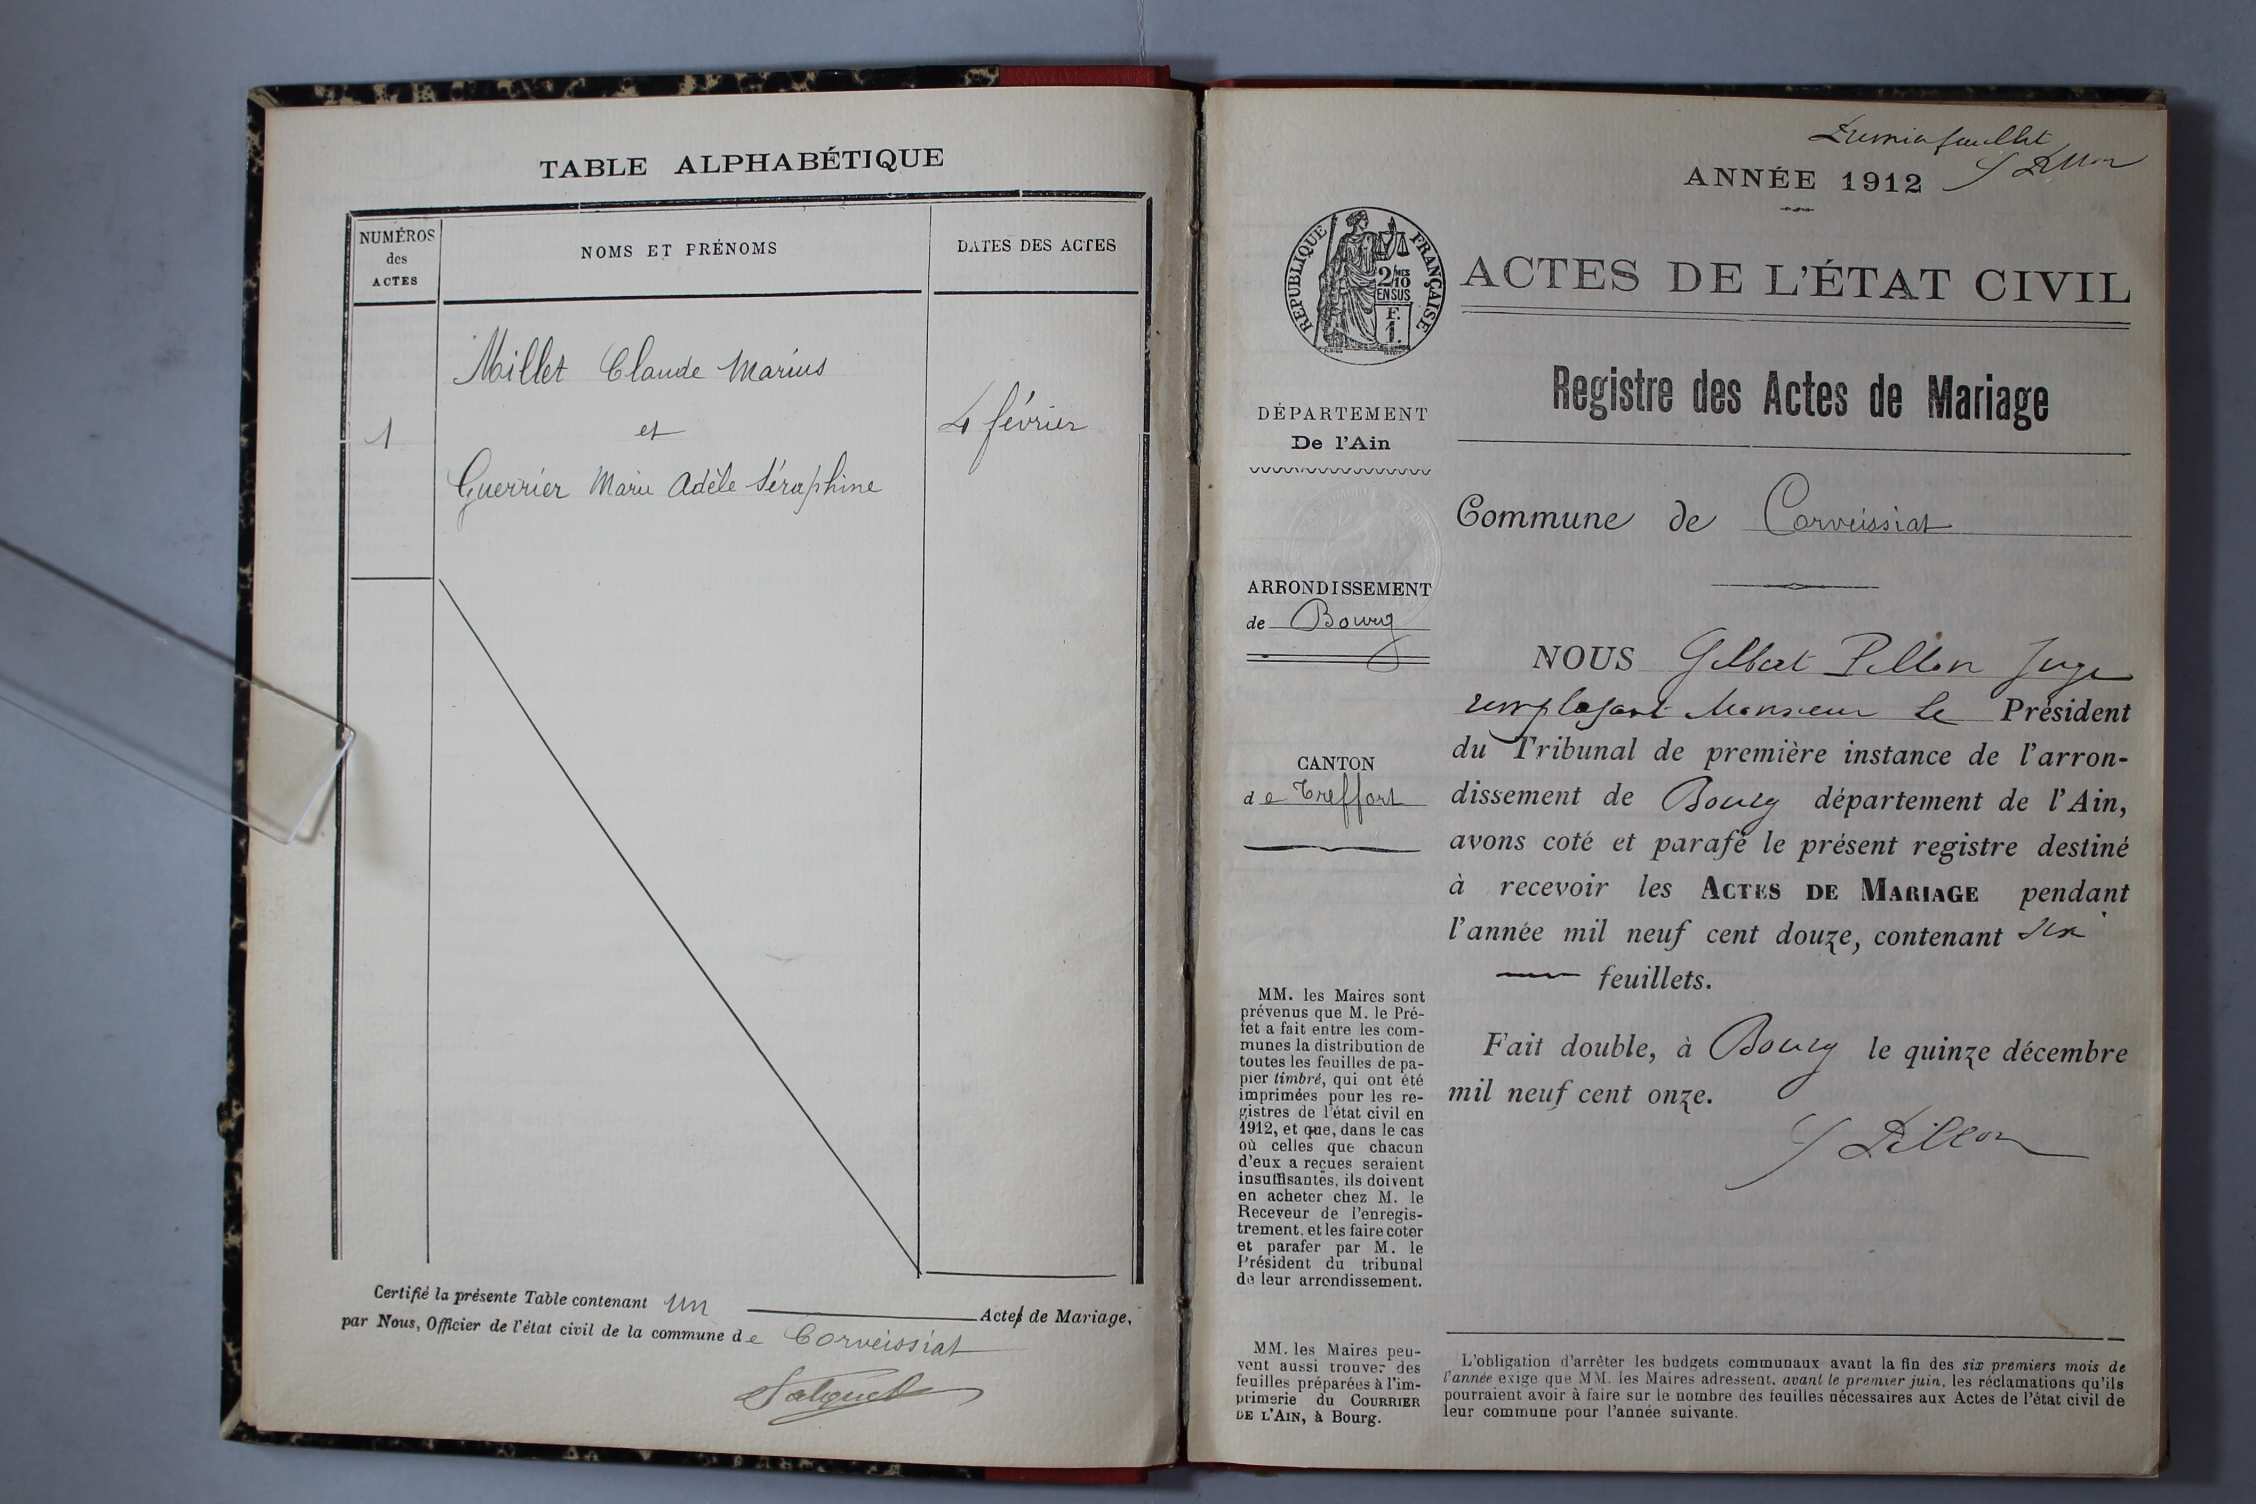 TABLE ALPHABÉTIQUE
NUMÉROS
des
ACTES
NOMS ET PRÉNOMS
DATES DES ACTES
Millet Claude Marius
1
et
4 février
Guerrier Marie Adèle Séraphine
Certifié la présente Table contenant un Actes de Mariage,
par Nous, Officier de l'état civil de la commune de Corveissiat
Premier feuillet
G Pillon
ANNÉE 1912
RÉPUBLIQUE FRANÇAISE
2/10
EN SUS
F.
1.
ACTES DE L'ÉTAT CIVIL
Registre des Actes de Mariage
DÉPARTEMENT
De l'Ain
Commune de Corveissiat
ARRONDISSEMENT
de Bourg
CANTON
de Treffort
NOUS Gilbert Pillon Juge
remplaçant Monsieur Le Président
du Tribunal de première instance de l'arron-
dissement de Bourg département de l'Ain,
avons coté et parafé le présent registre destiné
à recevoir les ACTES DE MARIAGE pendant
l'année mil neuf cent douze, contenant six
feuillets.
Fait double, à Bourg le quinze décembre
mil neuf cent onze.
G Pillon
MM. les Maires sont
prévenus que M. le Pré-
fet a fait entre les com-
munes la distribution de
toutes les feuilles de pa-
pier timbré, qui ont été
imprimées pour les re-
gistres de l'état civil en
1912, et que, dans le cas
où celles que chacun
d'eux a reçues seraient
insuffisantes, ils doivent
en acheter chez M. le
Receveur de l'enregis-
trement, et les faire coter
et parafer par M. le
Président du tribunal
de leur arrondissement.
MM. les Maires peu-
vent aussi trouver des
feuilles préparées à l'im-
primerie du COURRIER
DE L'AIN, à Bourg.
L'obligation d'arrêter les budgets communaux avant la fin des six premiers mois de
l'année exige que MM. les Maires adressent, avant le premier juin, les réclamations qu'ils
pourraient avoir à faire sur le nombre des feuilles nécessaires aux Actes de l'état civil de
leur commune pour l'année suivante.